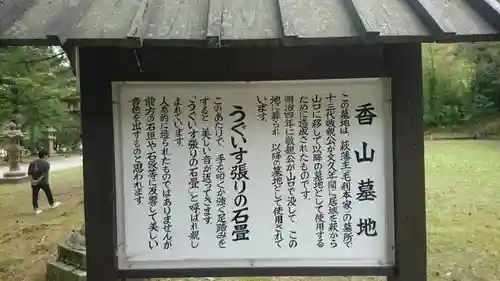 香山墓地
この墓地は、萩藩主(毛利本家)の墓所で
十三代敬親公が文久年間に居城を萩から
山口に移して以降の墓地として使用する
ために造成されたものです。
明治四年に敬親公が山口で没して、この
地に葬られ、以降の墓地として使用されて
います。
うぐいす張りの石畳
この石畳で、手を叩くか強く足踏みを
すると、美しい音が返つてきます。
「うぐいす張りの石畳」と呼ばれ親し
まれています。
人為的に造られたものではありませんが
前方の石垣や石段等に反響して美しい
音色を出すものと思われます。